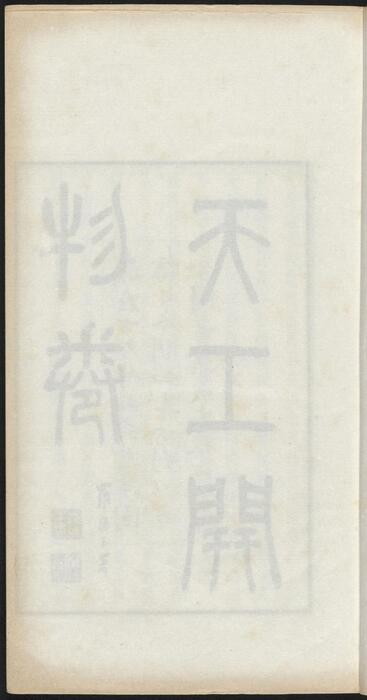 天工開
物卷